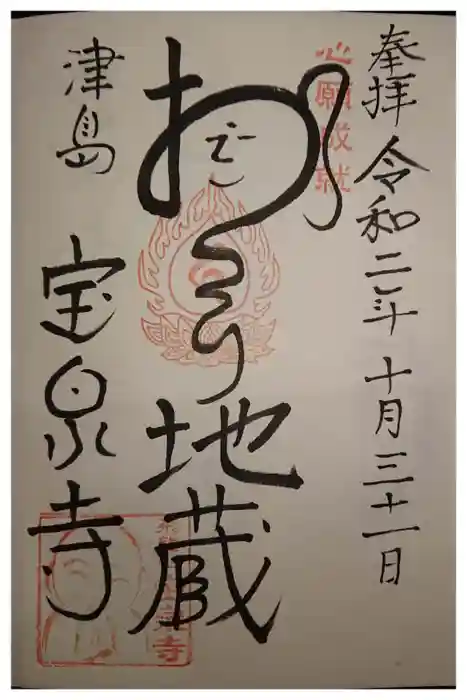 奉拝 令和二年十月三十一日
心願成就
おそそり地蔵
津島 宝泉寺